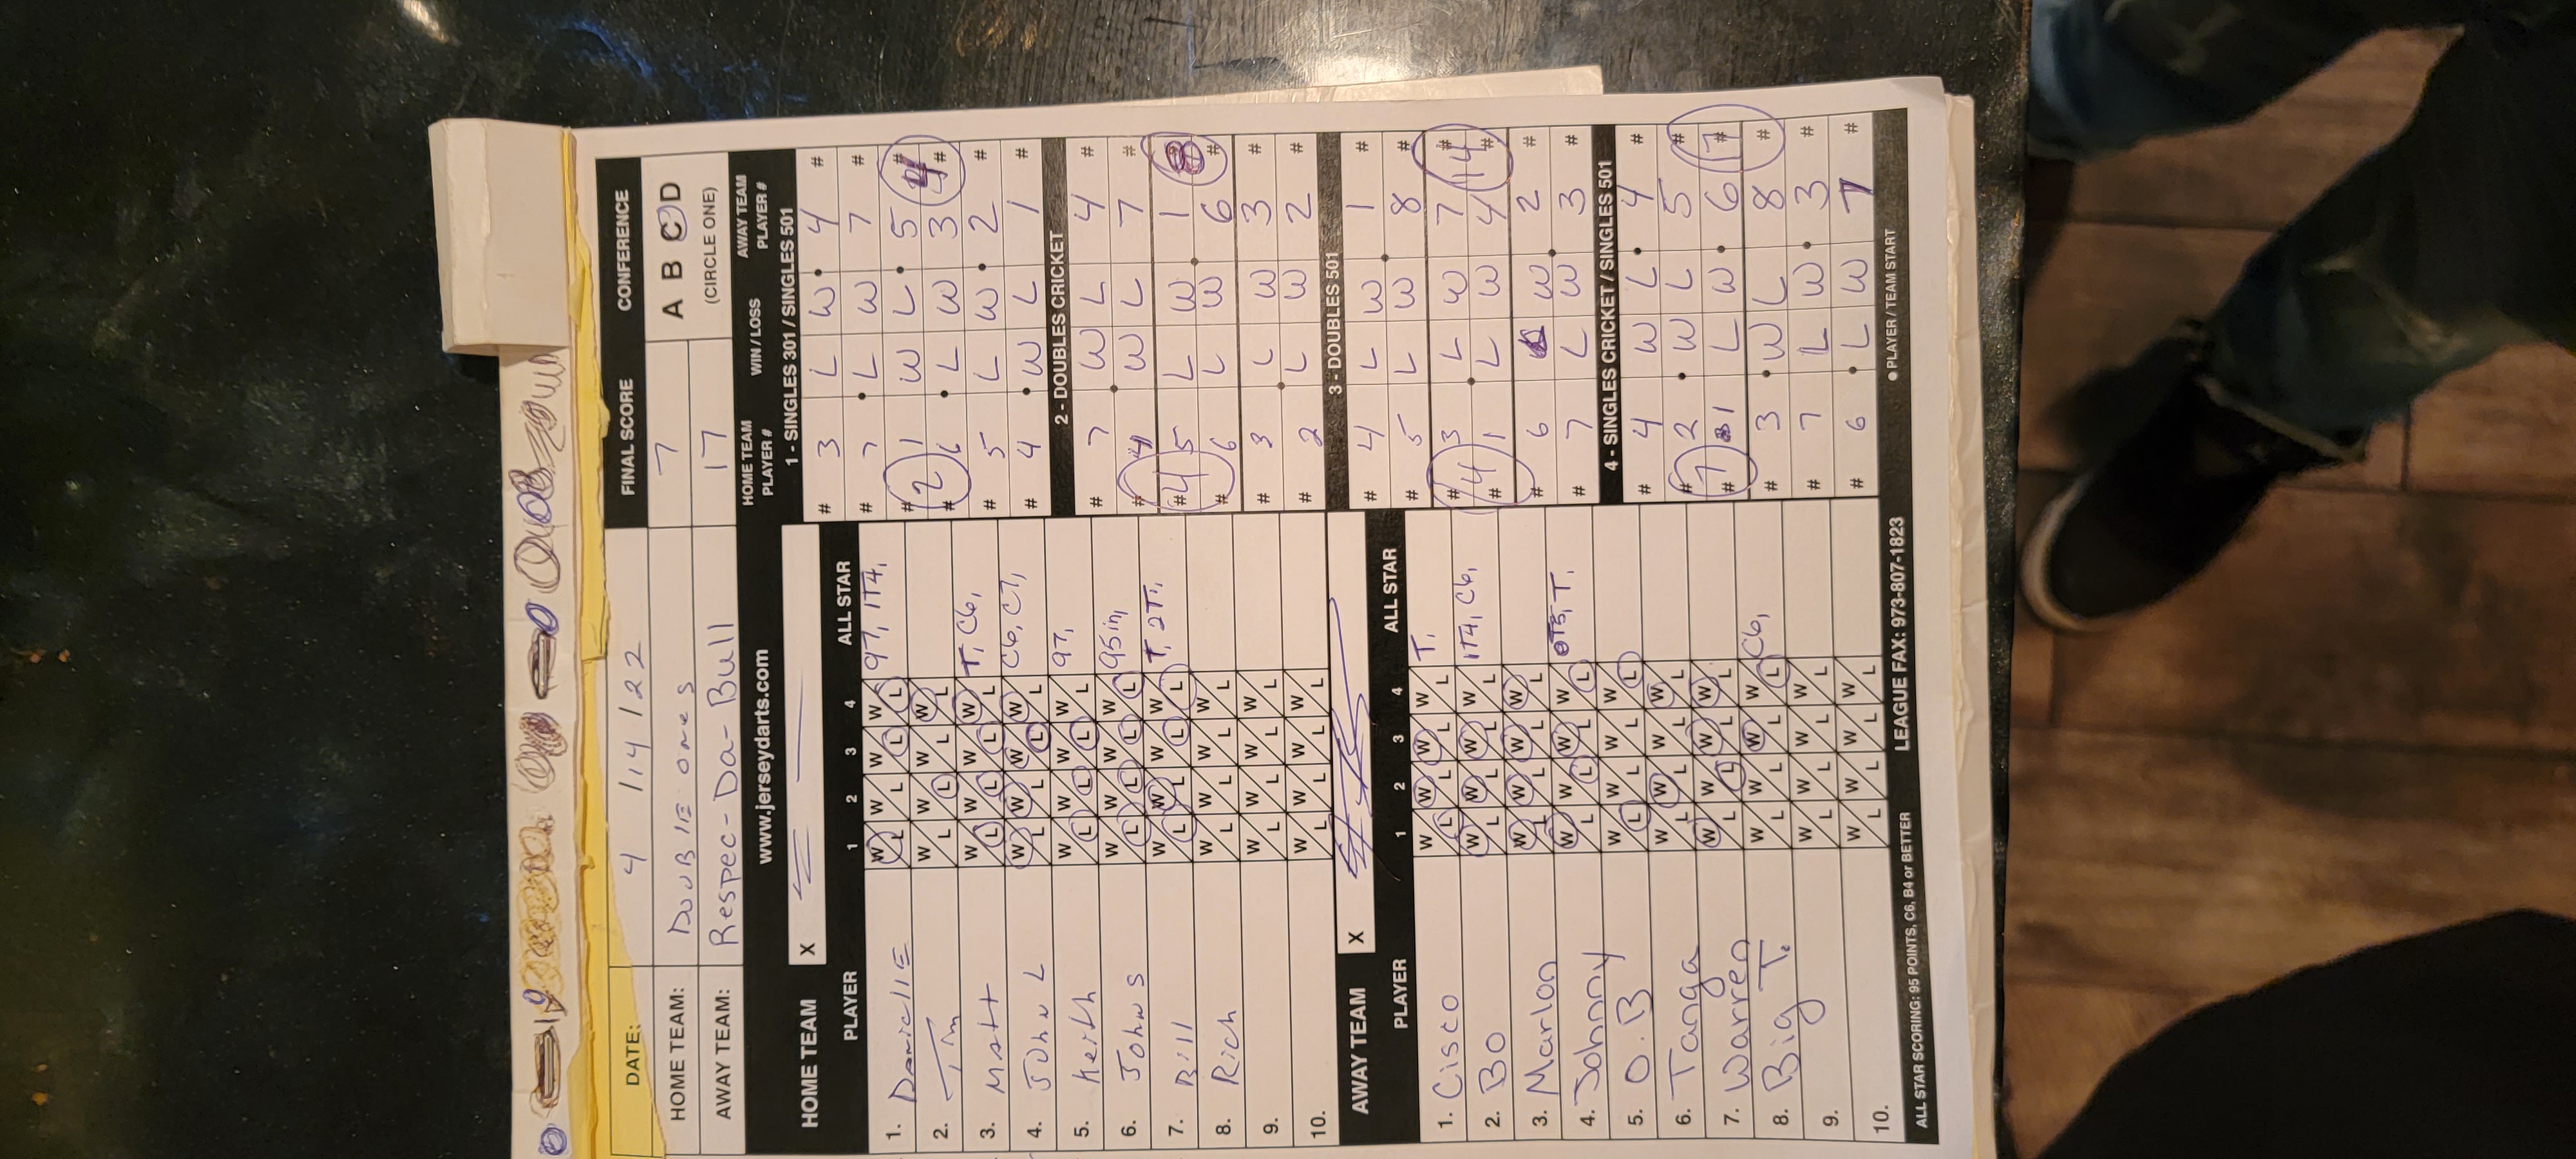 DATE: 4 / 14 / 22 FINAL SCORE CONFERENCE
HOME TEAM: DOUBLE ONES 7 A B C D
AWAY TEAM: Respec-Da-Bull 17 (CIRCLE ONE)
www.jerseydarts.com
HOME TEAM X
PLAYER 1 2 3 4 ALL STAR
1. Danielle W L W L W L W L 97, 1T4,
2. Tim W L W L W L W L
3. Matt W L W L W L W L T, C6,
4. John L W L W L W L W L C6, C7,
5. Keith W L W L W L W L 97,
6. John S W L W L W L W L 95in,
7. Bill W L W L W L W L T, 2T,
8. Rich W L W L W L W L
9. W L W L W L W L
10. W L W L W L W L
AWAY TEAM X
PLAYER 1 2 3 4 ALL STAR
1. Cisco W L W L W L W L T,
2. BO W L W L W L W L 1T4, C6,
3. Marlon W L W L W L W L
4. Johnny W L W L W L W L T,
5. O.B W L W L W L W L
6. Tanga W L W L W L W L
7. Warren W L W L W L W L
8. Big T. W L W L W L W L C6,
9. W L W L W L W L
10. W L W L W L W L
ALL STAR SCORING: 95 POINTS, C6, B4 or BETTER LEAGUE FAX: 973-807-1823
HOME TEAM PLAYER # WIN / LOSS AWAY TEAM PLAYER #
1 - SINGLES 301 / SINGLES 501
# 3 L W 4 #
# 7 L W 7 #
# 1 W L 5 #
2 4
# 6 L W 3 #
# 5 L W 2 #
# 4 W L 1 #
2 - DOUBLES CRICKET
# 7 W L 4 #
# 4 W L 7 #
# 4 5 L W 1 #
# 6 L W 6 #
# 3 L W 3 #
# 2 L W 2 #
3 - DOUBLES 501
# 4 L W 1 #
# 5 L W 8 #
# 3 L W 7 #
4 14
# 1 L W 4 #
# 6 L W 2 #
# 7 L W 3 #
4 - SINGLES CRICKET / SINGLES 501
# 4 W L 4 #
# 2 W L 5 #
# 7 1 L W 6 17 #
# 3 W L 8 #
# 7 L W 3 #
# 6 L W 7 #
● PLAYER / TEAM START